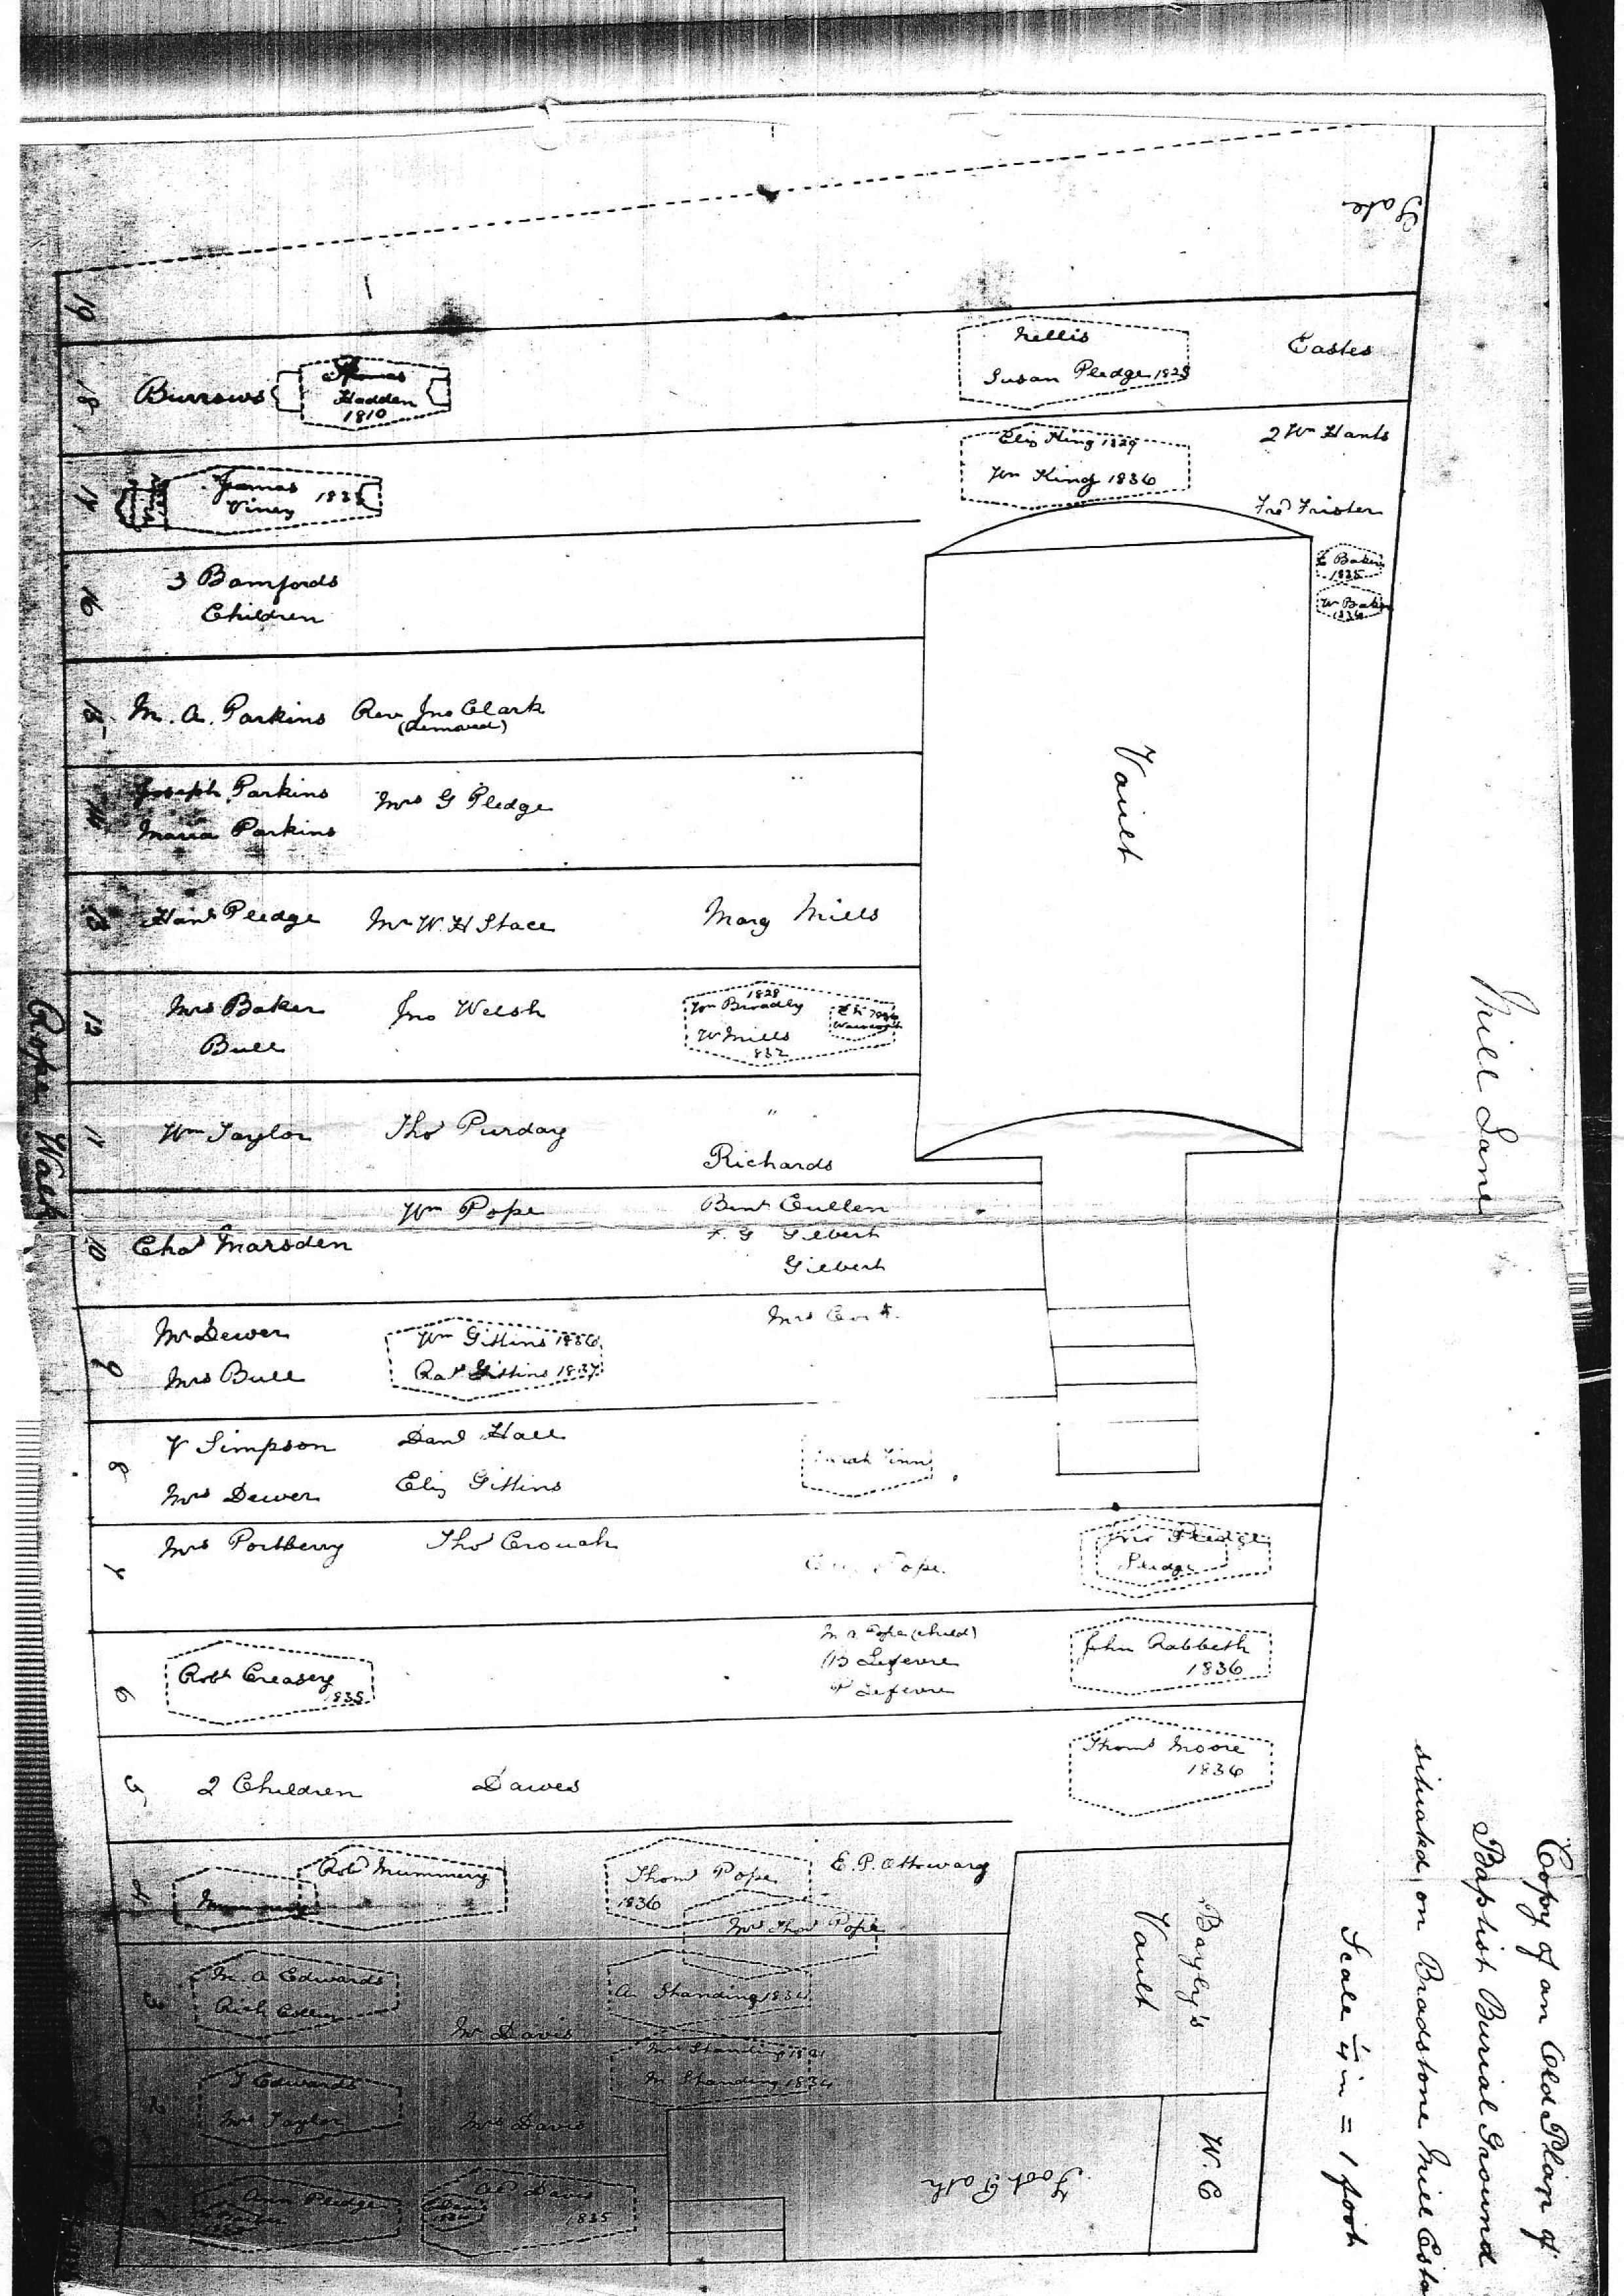 Copy of an Old Plan of
Baptist Burial Ground
situated on Bradstone Mill
Scale 1/4 in = 1 foot
Mill Lane
Rope Walk
Gate
19
18
Burrows
Thomas
Hadden
1810
Nellis
Susan Pledge 1828
Eastes
17
James
Viney
Eliz King 1829
Wm King 1836
2 Wm Hants
Fred Frister
16
3 Bamfords
Children
E Baker
1835
W Baker
1836
Vault
15
M. A. Parkins
Rev Jno Clark
(Removed)
14
Joseph Parkins
Maria Parkins
Mrs G Pledge
13
Hant Pledge
Mr W. H Stace
Mary Mills
12
Mrs Baker
Bull
Jno Welsh
1828
Wm Broadly
W Mills
832
11
Wm Taylor
Thos Purday
"
Richards
10
Chas Marsden
Wm Pope
Benj Cullen
F. G Gilbert
Gilbert
9
Mr Dewer
Mrs Bull
Wm Gittins 1836
Robt Gittins 1837
Mrs
8
V Simpson
Mrs Dewer
Danl Hall
Eliz Gittins
7
Mrs Portberry
Thos Crouch
Pope
Jno Pledge
Pledge
6
Robt Creasey
1835
M A Pope (child)
B Lefevre
P Lefevre
John Rabbeth
1836
5
2 Children
Dawes
Thoms Moore
1836
4
Robt Mummery
Thoms Pope
1836
Mrs Thos Pope
E. P. Ottoway
Bayly's
Vault
3
M. A Edwards
Rich Collin
Mr Davis
A. Standing 1834
2
T Edwards
Mrs Taylor
Mrs Davis
Mrs Standing
M Standing 1834
W. C
Foot Path
Ann Pledge
Davis
1835